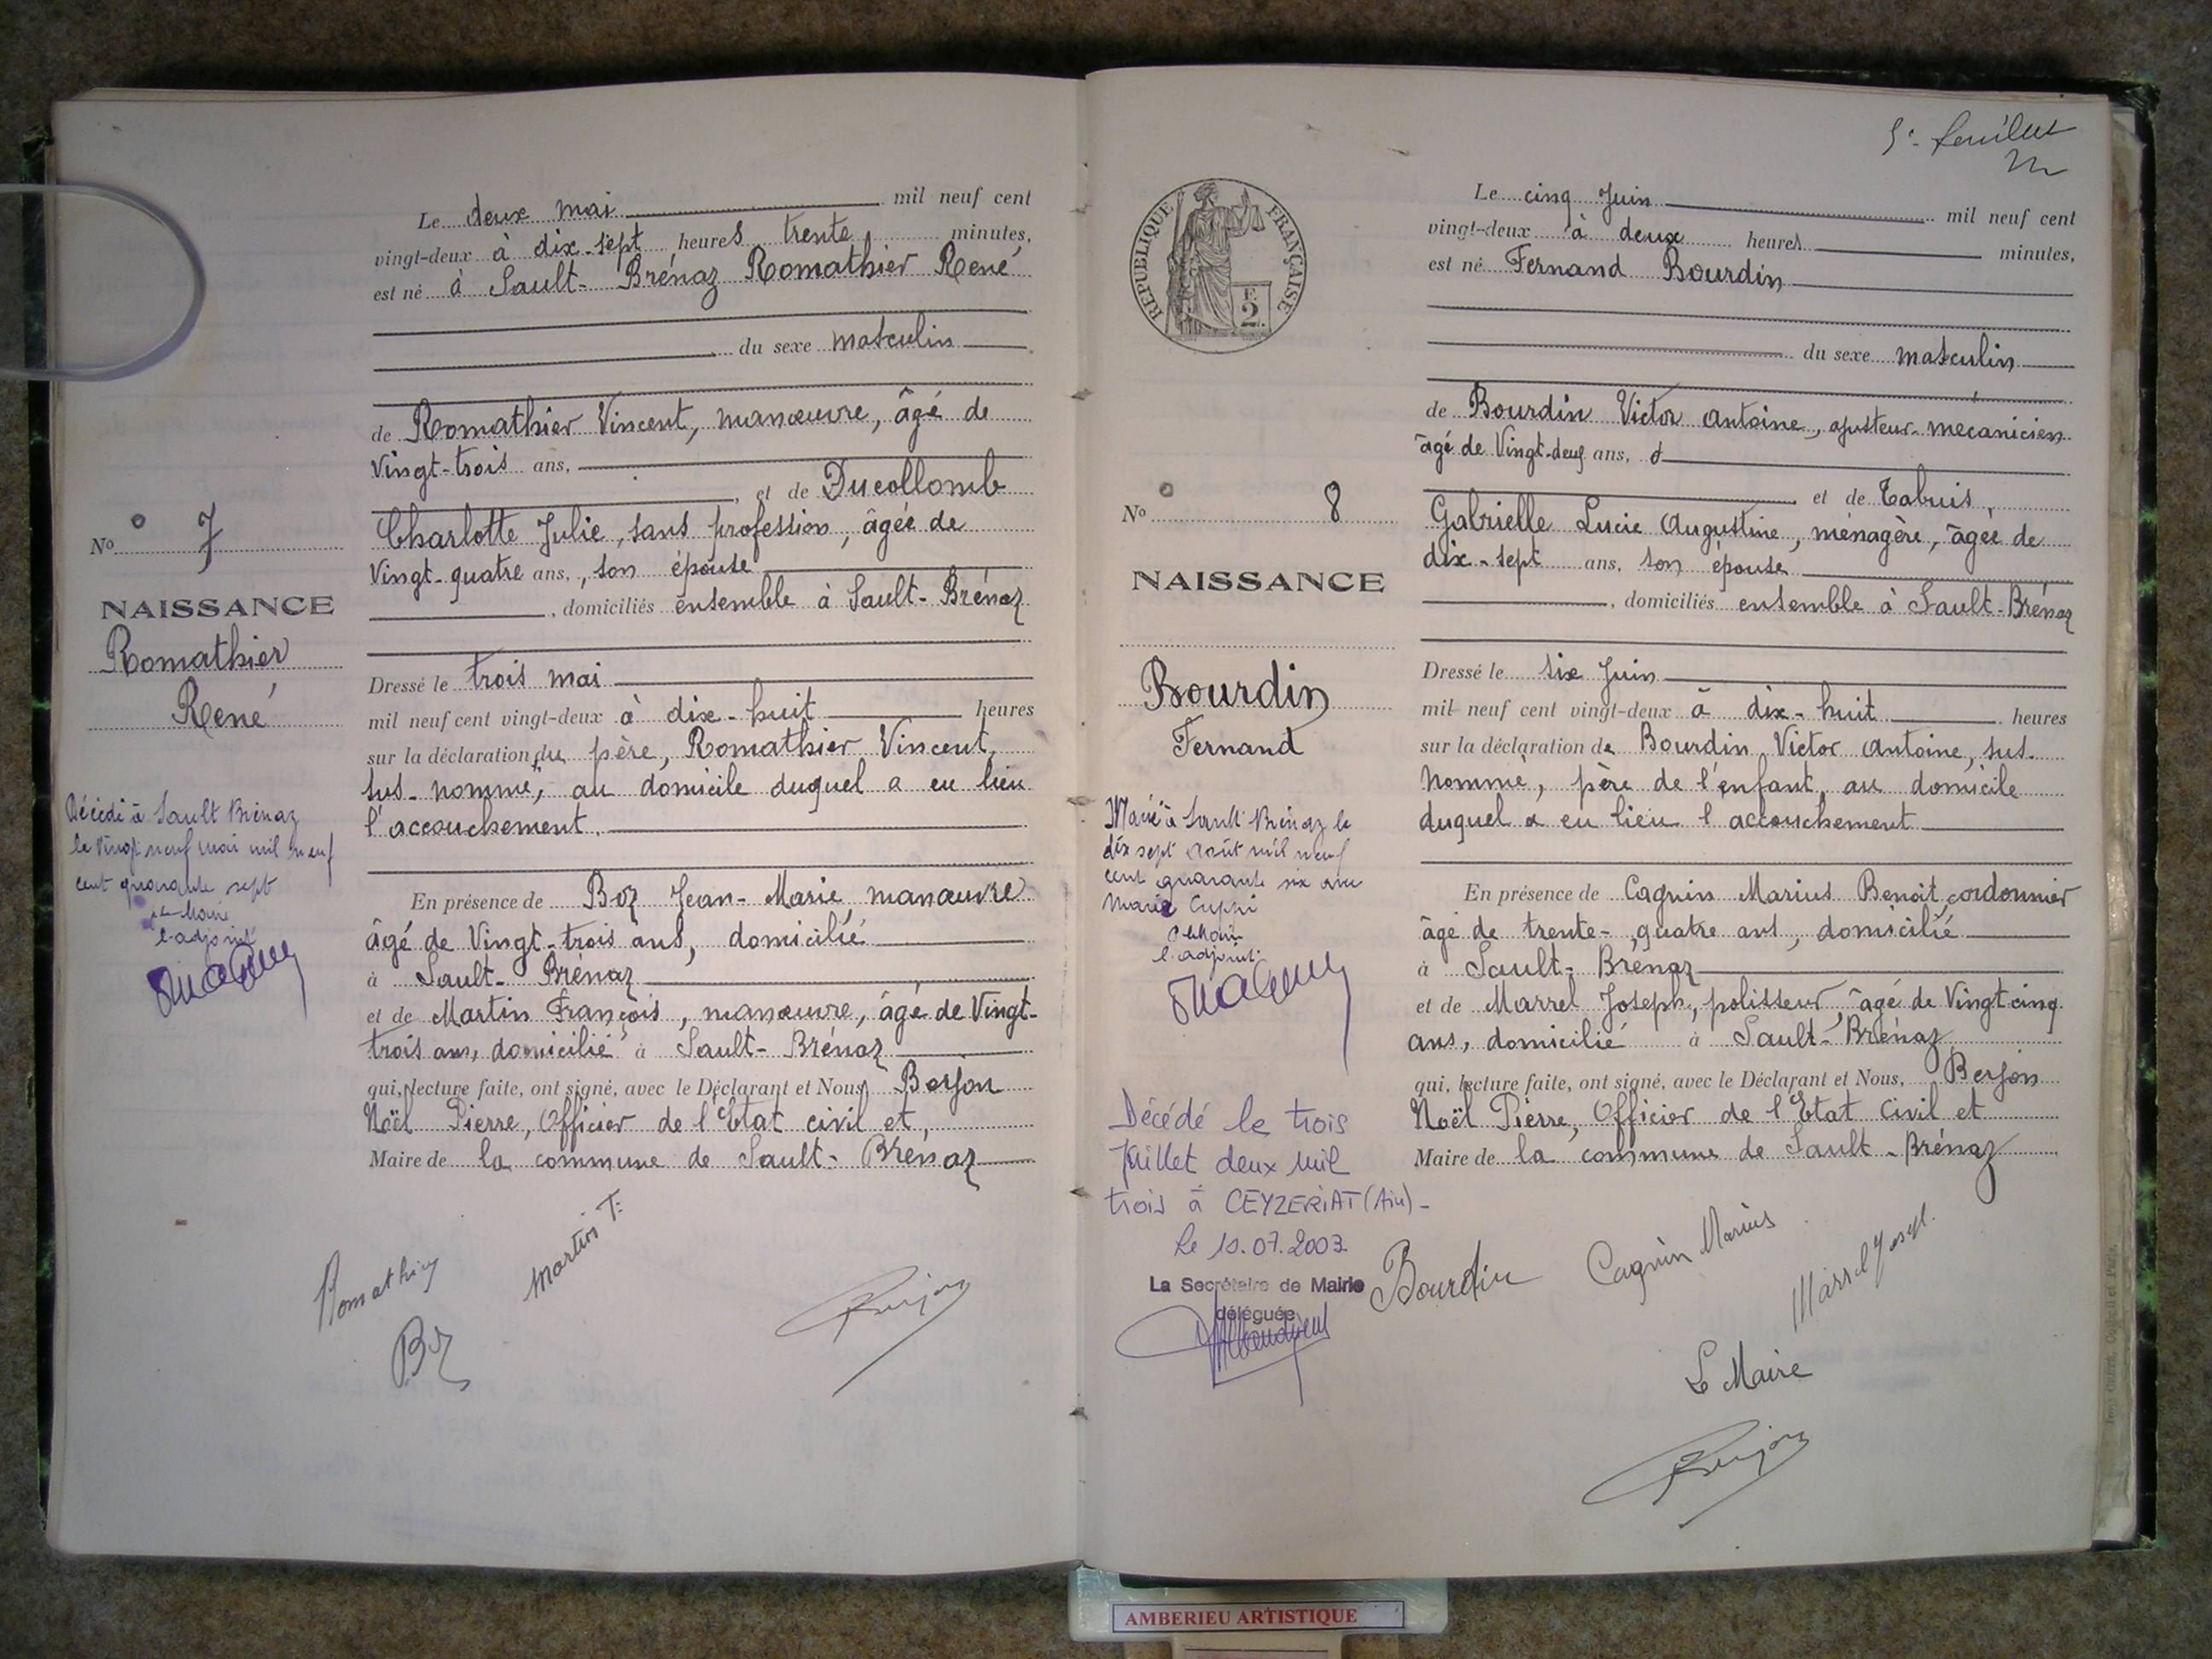 Le deux mai mil neuf cent
vingt-deux à dix-sept heures trente minutes,
est né à Sault-Brénaz Romathier René
du sexe masculin
de Romathier Vincent, manœuvre, âgé de
vingt-trois ans,
, et de Ducollomb
Charlotte Julie, sans profession, âgée de
vingt-quatre ans, son épouse
, domiciliés ensemble à Sault-Brénaz
Dressé le trois mai
mil neuf cent vingt-deux à dix-huit heures
sur la déclaration du père, Romathier Vincent,
sus-nommé, au domicile duquel a eu lieu
l'accouchement.
En présence de Boz Jean-Marie, manœuvre
âgé de vingt-trois ans, domicilié
à Sault-Brénaz
et de Martin François, manœuvre, âgé de vingt-
trois ans, domicilié à Sault-Brénaz
qui, lecture faite, ont signé, avec le Déclarant et Nous, Berjon
Noël Pierre, Officier de l'Etat civil et,
Maire de la commune de Sault-Brénaz
No 7
NAISSANCE
Romathier
René
Décédé à Sault Brénaz
le vingt neuf mai mil neuf
cent quarante sept
l'adjoint
Romathier
Boz
Martin F.
Berjon
5e feuillet
REPUBLIQUE FRANÇAISE
F.
2.
Le cinq Juin mil neuf cent
vingt-deux à deux heures minutes,
est né Fernand Bourdin
du sexe masculin
de Bourdin Victor Antoine, ajusteur-mécanicien
âgé de Vingt-deux ans,
et de Tabuis,
Gabrielle Lucie Augustine, ménagère, âgée de
dix-sept ans, son épouse
, domiciliés ensemble à Sault-Brénaz
Dressé le six Juin
mil neuf cent vingt-deux à dix-huit heures
sur la déclaration de Bourdin Victor Antoine, sus-
nommé, père de l'enfant, au domicile
duquel a eu lieu l'accouchement
En présence de Cagnin Marius Benoit, cordonnier
âgé de trente-quatre ans, domicilié
à Sault-Brénaz
et de Marrel Joseph, polisseur, âgé de vingt cinq
ans, domicilié à Sault-Brénaz
qui, lecture faite, ont signé, avec le Déclarant et Nous, Berjon
Noël Pierre, Officier de l'Etat Civil et
Maire de la commune de Sault-Brénaz
No 8
NAISSANCE
Bourdin
Fernand
Marié à Sault Brénaz le
dix sept Août mil neuf
cent quarante six avec
Maria
l'adjoint
Décédé le trois
Juillet deux mil
trois à CEYZERIAT (Ain) -
Le 10.07.2003
La Secrétaire de Mairie
déléguée
Bourdin
Cagnin Marius
Marrel Joseph
Le Maire
Berjon
AMBERIEU ARTISTIQUE